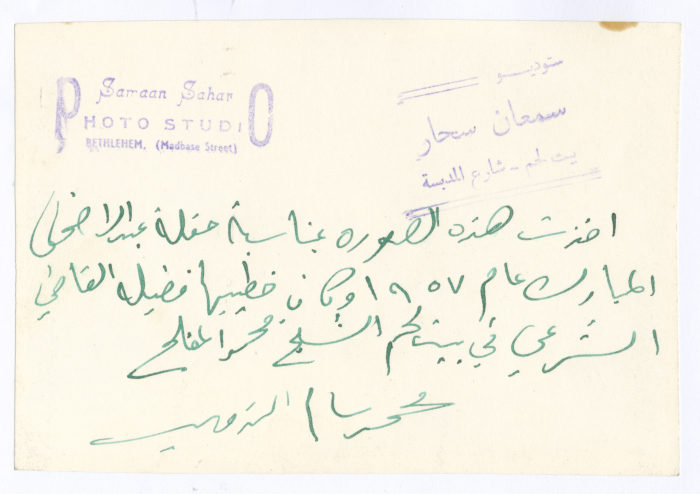 Samaan Sahar
PHOTO STUDIO
BETHLEHEM, (Madbase Street)
ستوديو
سمعان سحار
بيت لحم - شارع المدبسة
اخذت هذه الصوره بمناسبة حفلة عيد الاضحى
المبارك عام ١٩٥٧ وكان خطيبها فضيلة القاضي
الشرعي في بيت لحم الشيخ محمد المفلح
محمد سالم